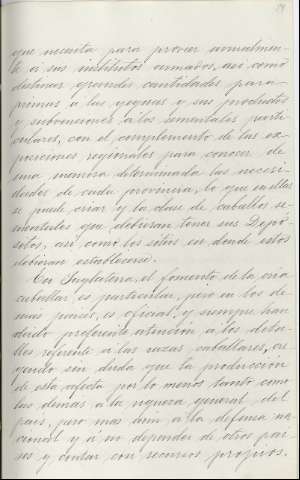 que necesita para proveer anualmen-
te á sus institutos armados, asi como
destinar grandes cantidades para
primas á las yeguas y sus productos
y subvenciones á los sementales parti-
culares, con el complemento de las es-
posiciones regionales para conocer de
una manera determinada las necesi-
dades de cada provincia, lo que en ellas
se puede criar y la clase de caballos se-
mentales que debieran tener sus Depó-
sitos, asi como los sitios en donde estos
debieran establecerse.
En Inglaterra, el fomento de la cria
caballar es particular, pero en los de
mas paises, es oficial, y siempre han
dado preferente atención á los deta-
lles referente á las razas caballares, cre
yendo sin duda que la producción
de esta afecta por lo menos tanto como
las demas á la riqueza general del
pais, pero mas aun á la defensa na-
cional y á no depender de otros pai-
ses y contar con recursos propios.